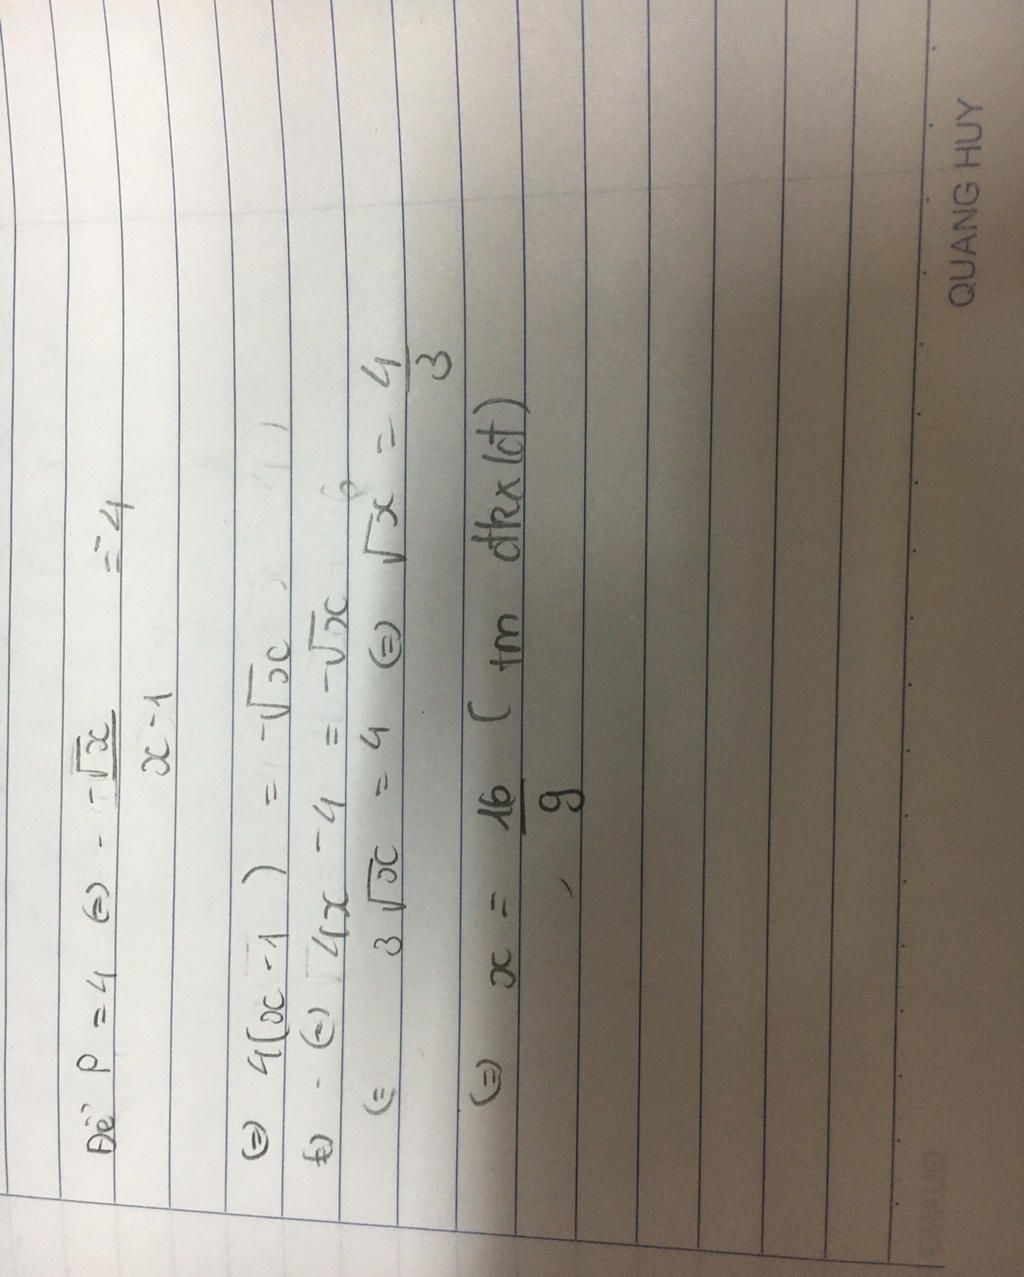 Để P = 4 (=) - -√x / x - 1 = 4
(=) 4(x - 1) = -√x
(=) 4x - 4 = -√x
(= 3√x = 4 (=) √x = 4/3
(=) x = 16/9 ( tm đkxđ)
QUANG HUY